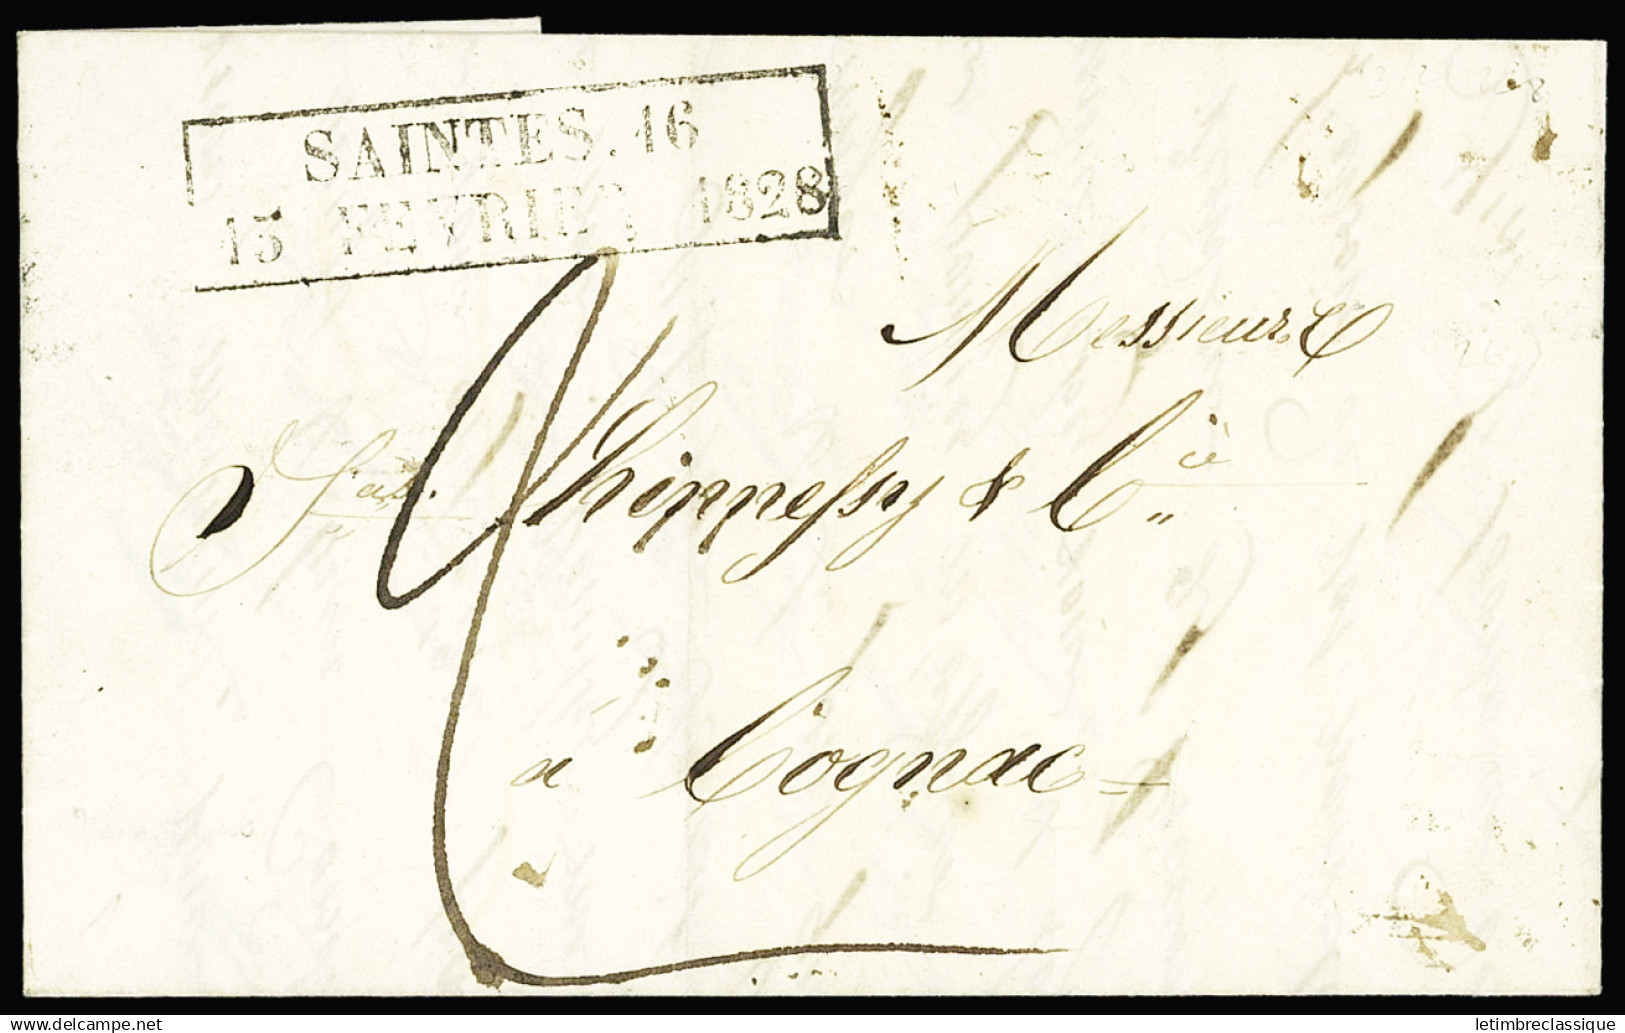 SAINTES. 16
15 FEVRIER 1828
Messieurs
Jas. hennessy & Cie
a Cognac
delcampe.net
letimbreclassique